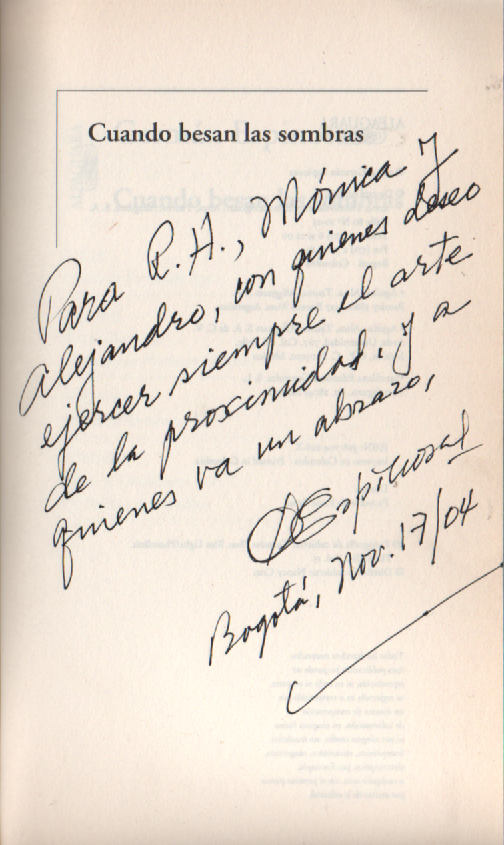 Cuando besan las sombras
Para R.H., Mónica y
Alejandro, con quienes deseo
ejercer siempre el arte
de la proximidad, y a
quienes va un abrazo,
GEspinosa
Bogotá, Nov. 17/04